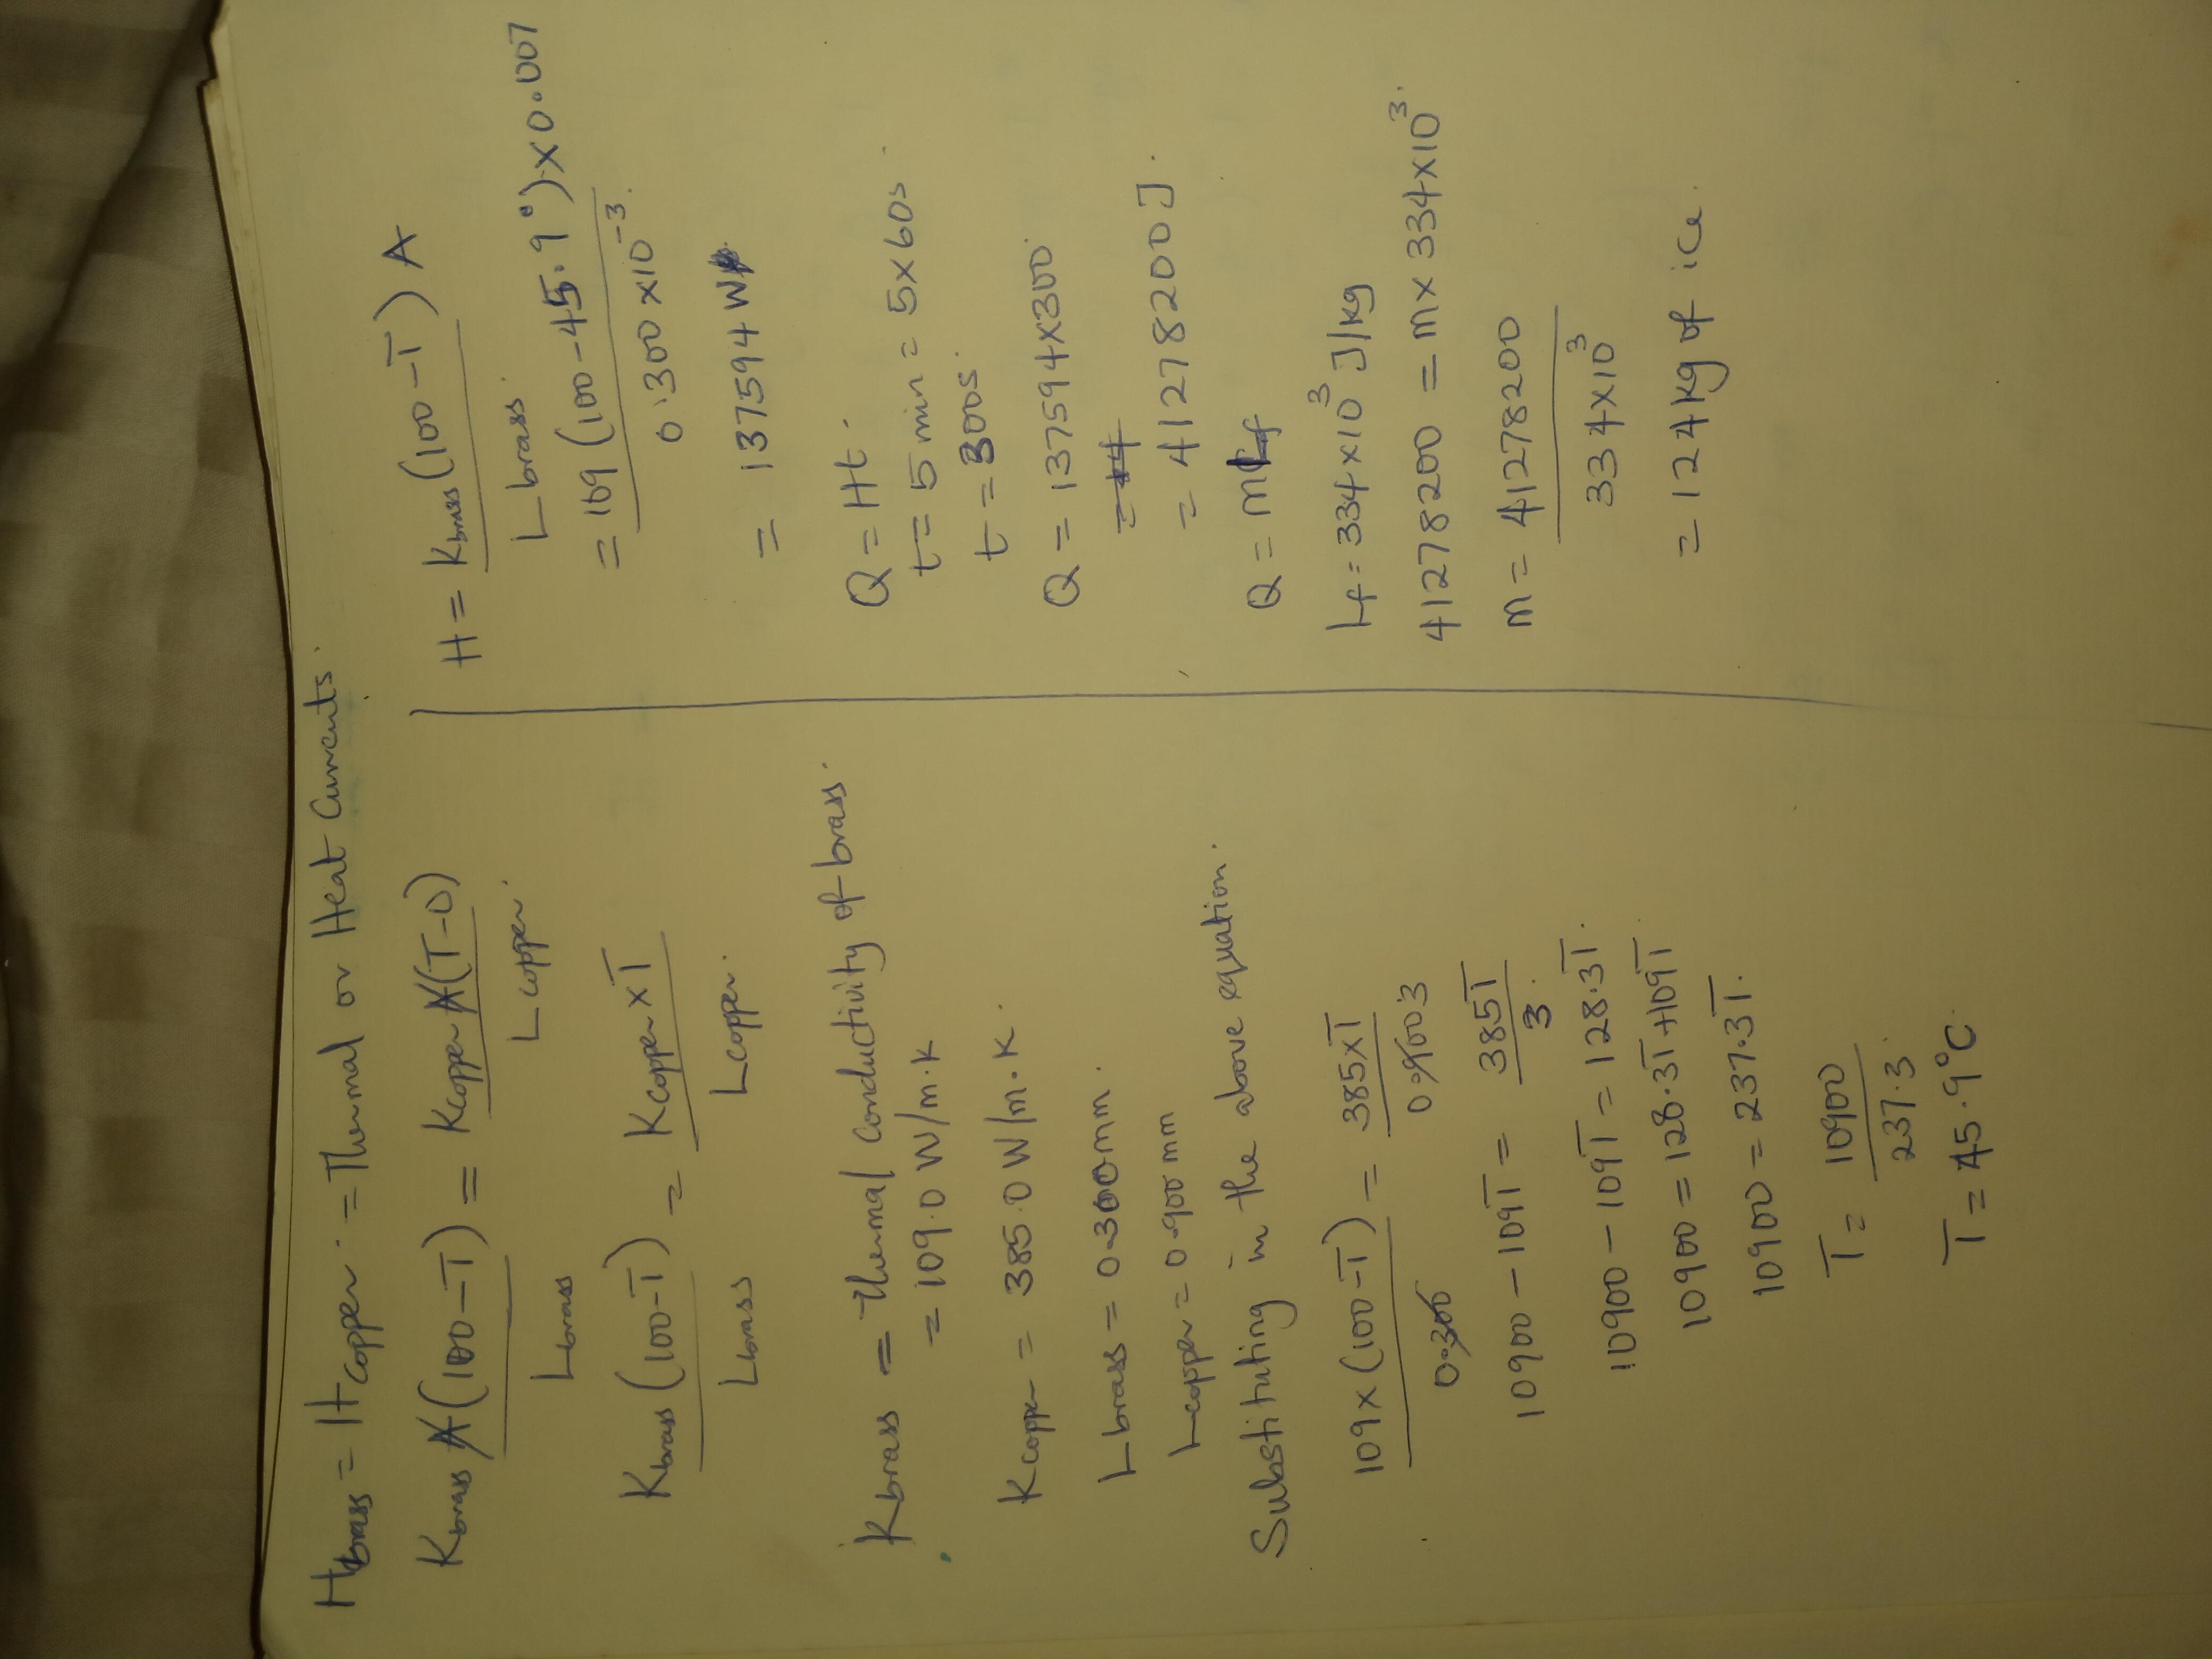 Hbrass = Hcopper. = Thermal or Heat Currents.
Kbrass A(100-T) = Kcopper A(T-0)
Lbrass Lcopper.
Kbrass(100-T) = Kcopper x T
Lbrass Lcopper.
Kbrass = Thermal conductivity of brass.
= 109.0 W/m.K
Kcopper = 385.0 W/m.K.
Lbrass = 0.300mm.
Lcopper = 0.900mm
Substituting in the above equation.
109x(100-T) = 385xT
0.300 0.900 3
10900-109T = 385T
3.
10900-109T = 128.3T.
10900 = 128.3T+109T
10900 = 237.3T.
T = 10900
237.3.
T = 45.9°C.
H = Kbrass(100-T) A
Lbrass.
= 109(100-45.9°)x0.007
0.300x10-3.
= 137594 W
Q = Ht.
t = 5 min = 5x60s.
t = 300s.
Q = 137594x300.
= 41278200 J.
Q = mLf
Lf = 334x10³ J/kg
41278200 = mx334x10³.
m = 41278200
334x10³
= 124kg of ice.